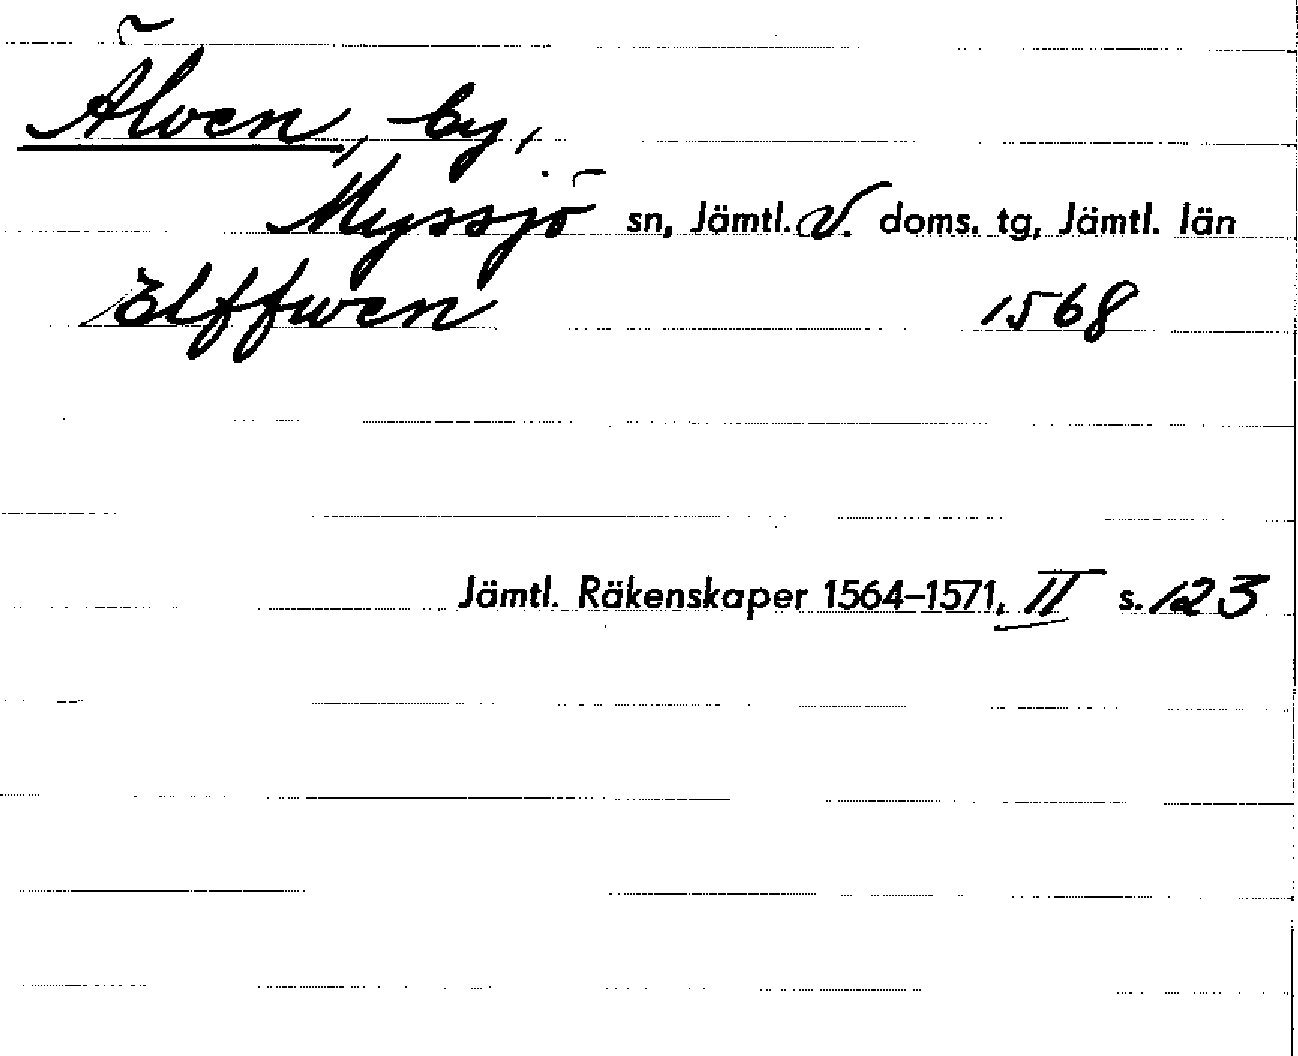 Älven, by,
Myssjö sn, Jämtl. V. doms. tg, Jämtl. län
Elffwen 1568
Jämtl. Räkenskaper 1564–1571, II s. 123